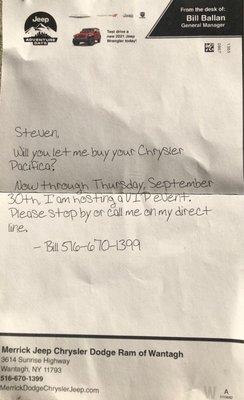 From the desk of:
Bill Ballan
General Manager
Jeep
ADVENTURE
DAYS
Jeep
Test drive a
new 2021 Jeep
Wrangler today!
Steven,
Will you let me buy your Chrysler
Pacifica?
Now through Thursday, September
30th, I am hosting a VIP event.
Please stop by or call me on my direct
line.
- Bill 516-670-1399
Merrick Jeep Chrysler Dodge Ram of Wantagh
3614 Sunrise Highway
Wantagh, NY 11793
516-670-1399
MerrickDodgeChryslerJeep.com
W
A